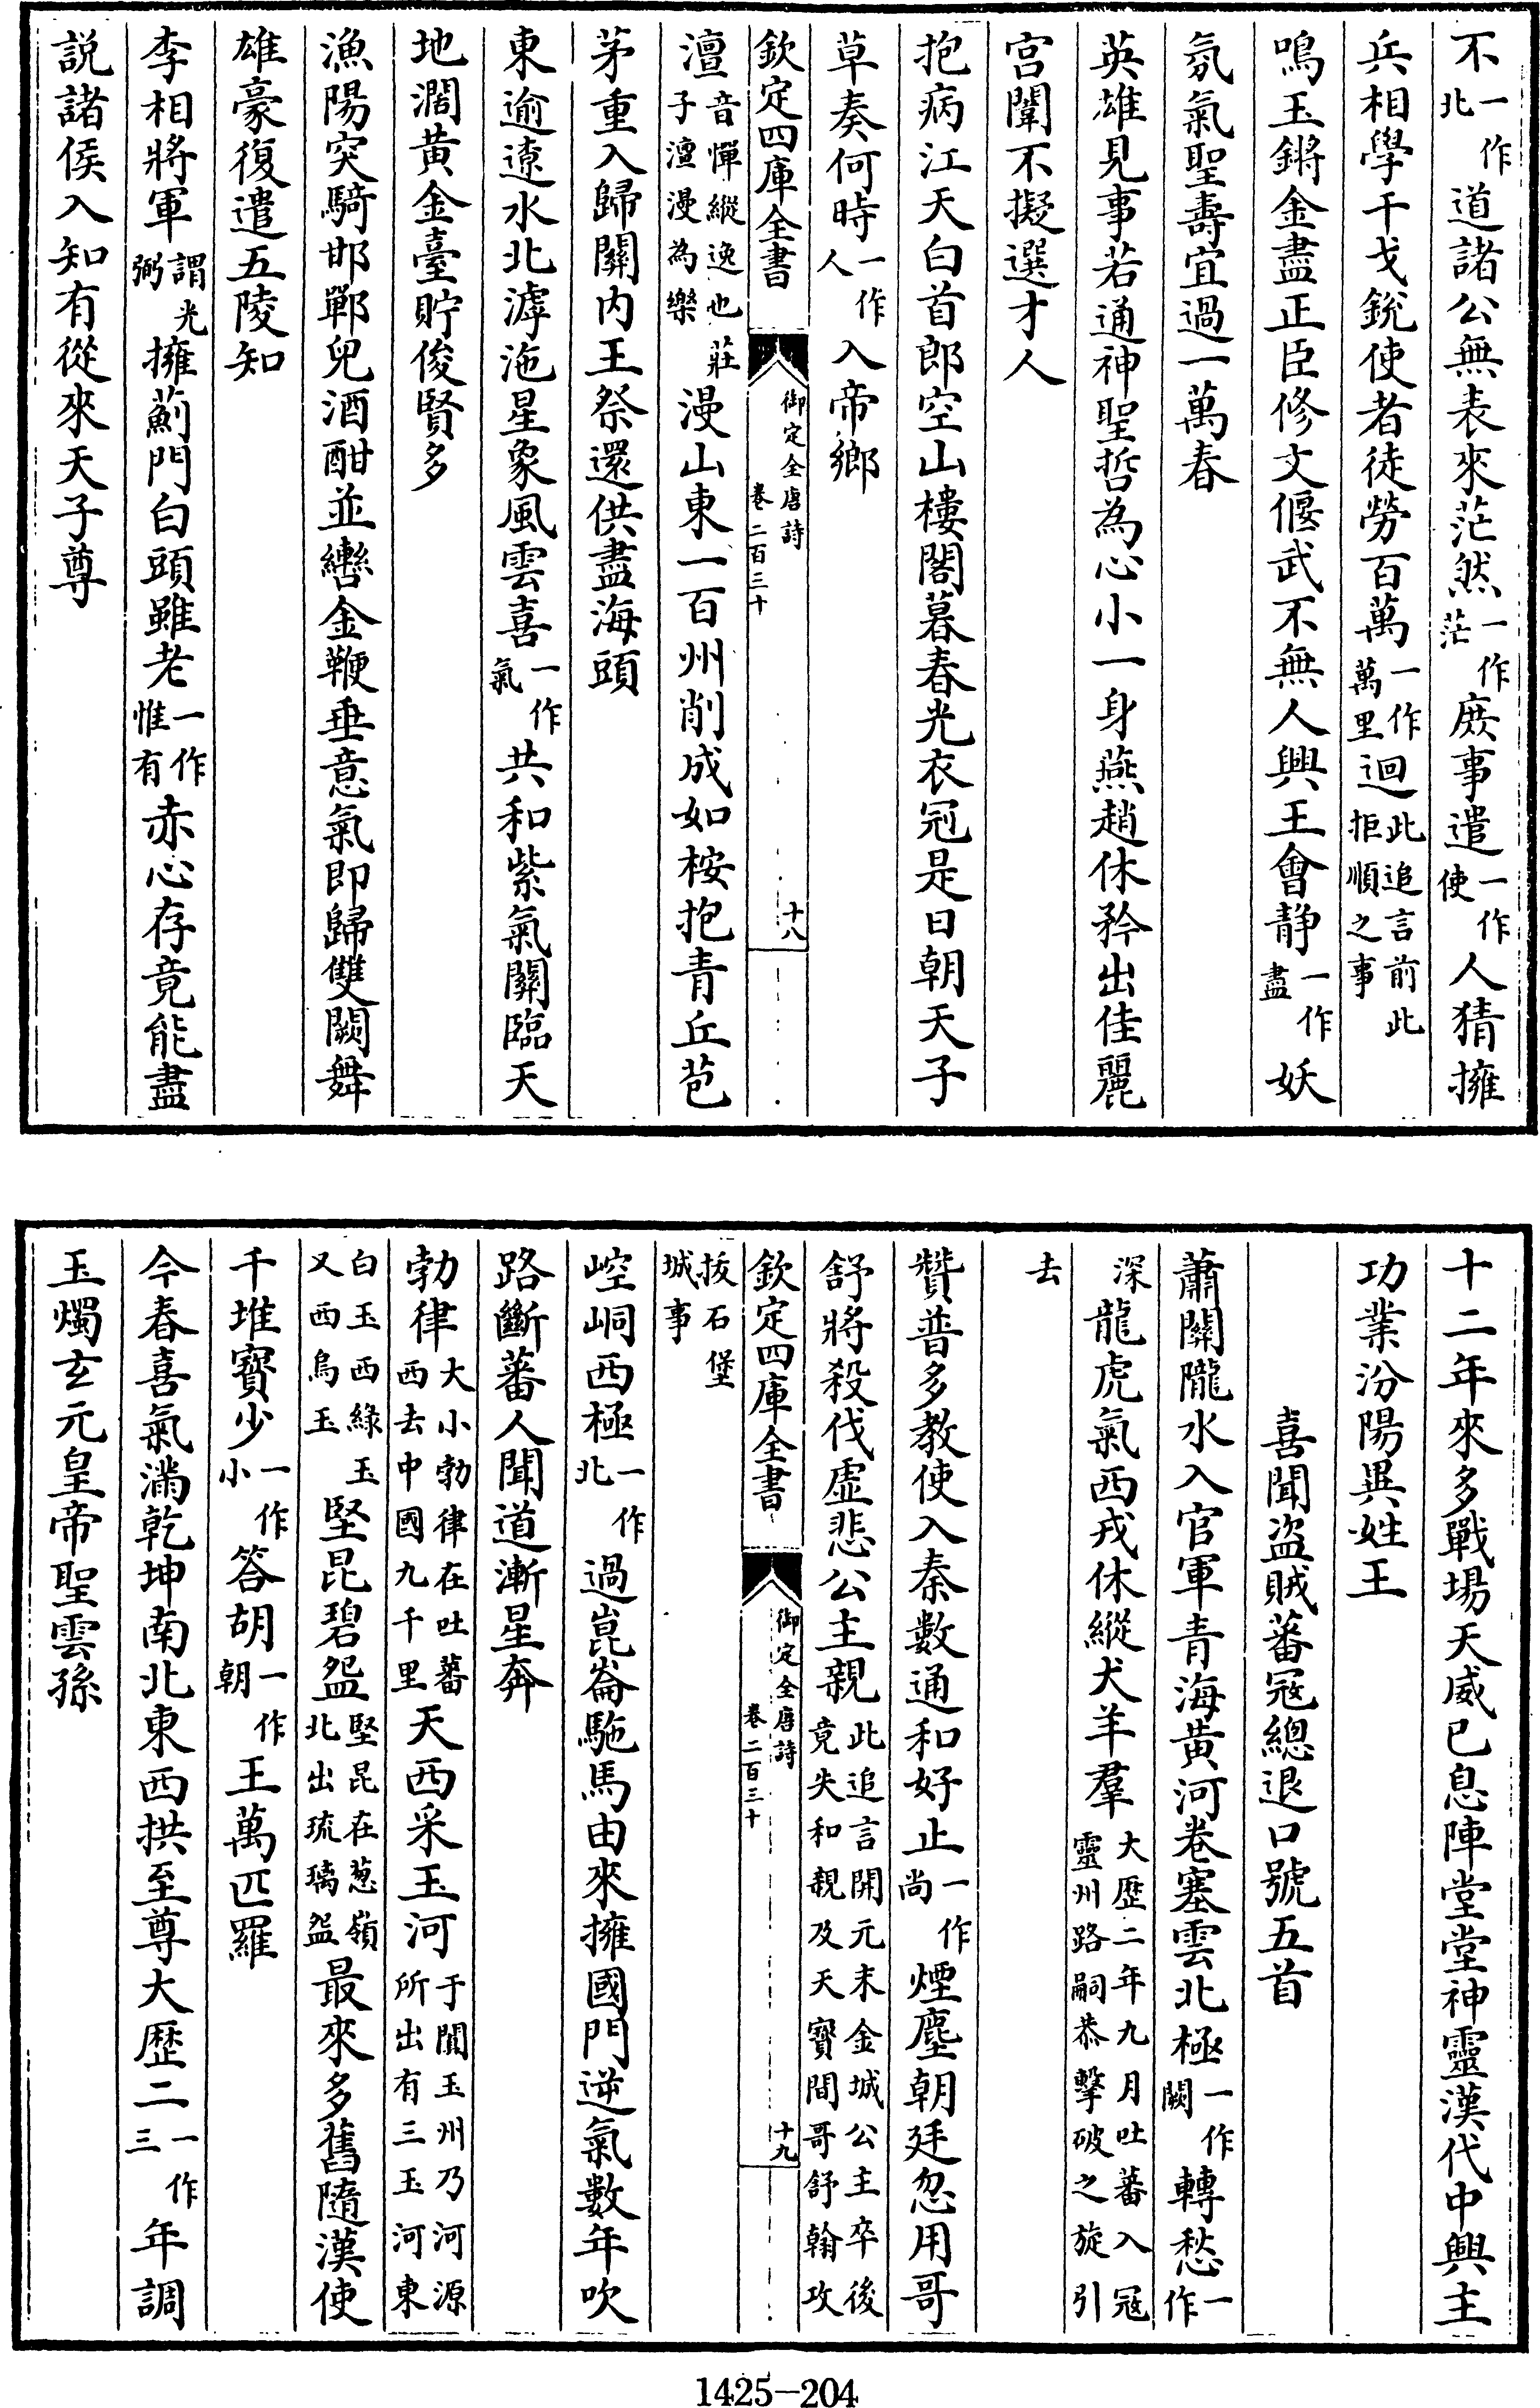 不一作北道諸公無表來茫然一作茫庶事遣一作使人猜擁
兵相學干戈銳使者徒勞百萬一作萬里迴此追言前此拒順之事
鳴玉鏘金盡正臣修文偃武不無人興王會静一作盡妖
氛氣聖壽宜過一萬春
英雄見事若通神聖哲為心小一身燕趙休矜出佳麗
宫闈不擬選才人
抱病江天白首郎空山樓閣暮春光衣冠是日朝天子
草奏何時一作人入帝鄉
欽定四庫全書
御定全唐詩
卷二百三十
十八
澶音憚縱逸也莊子澶漫為樂漫山東一百州削成如桉抱青丘苞
茅重入歸關内王祭還供盡海頭
東逾遼水北滹沲星象風雲喜一作氣共和紫氣關臨天
地濶黄金臺貯俊賢多
漁陽突騎邯鄲兒酒酣並轡金鞭垂意氣即歸雙闕舞
雄豪復遣五陵知
李相將軍謂光弼擁薊門白頭雖老一作惟有赤心存竟能盡
説諸侯入知有從來天子尊
十二年來多戰場天威已息陣堂堂神靈漢代中興主
功業汾陽異姓王
喜聞盜賊蕃寇總退口號五首
蕭關隴水入官軍青海黄河卷塞雲北極一作闕轉愁一作
深龍虎氣西戎休縱犬羊羣大歷二年九月吐蕃入寇靈州路嗣恭擊破之旋引
去
贊普多教使入秦數通和好止一作尚煙塵朝廷忽用哥
舒將殺伐虚悲公主親此追言開元末金城公主卒後竟失和親及天寶間哥舒翰攻
欽定四庫全書
御定全唐詩
卷二百三十
十九
拔石堡城事
崆峒西極一作北過崑崙駞馬由來擁國門逆氣數年吹
路斷蕃人聞道漸星奔
勃律大小勃律在吐蕃西去中國九千里天西采玉河于闐玉州乃河源所出有三玉河東
白玉西綠玉又西烏玉堅昆碧盌堅昆在葱嶺北出琉璃盌最來多舊隨漢使
千堆寶少一作小答胡一作朝王萬匹羅
今春喜氣滿乾坤南北東西拱至尊大歷二一作三年調
玉燭玄元皇帝聖雲孫
1425-204